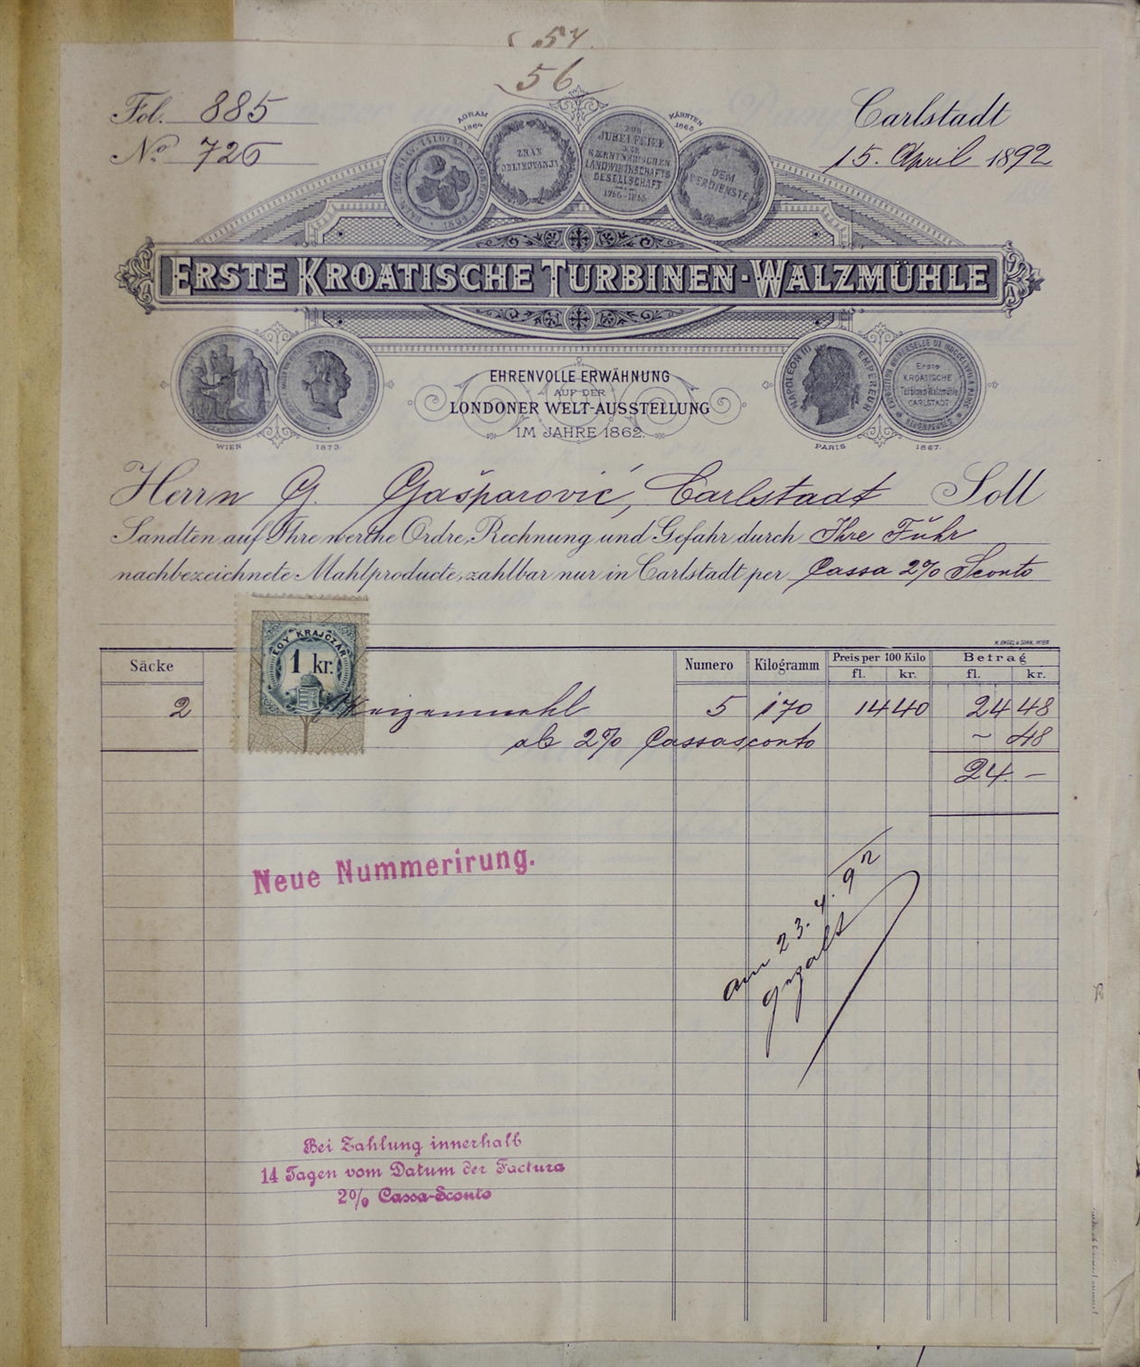 54.
56
Fol. 885
No 726
Carlstadt
15. April 1892
AGRAM
1864
KÄRNTEN
1865
ZNAK
ODLIKOVANJA
ZUR
JUBELFEIER
DER
KAERNTNERISCHEN
LANDWIRTHSCHAFTS
GESELLSCHAFT
1765-1865
DEM
VERDIENSTE
ERSTE KROATISCHE TURBINEN-WALZMÜHLE
EHRENVOLLE ERWÄHNUNG
AUF DER
LONDONER WELT-AUSSTELLUNG
IM JAHRE 1862.
WIEN 1873.
NAPOLEON III EMPEREUR
Erste
KROATISCHE
Turbinen-Walzmühle
CARLSTADT
PARIS 1867.
Herrn G. Gašparović, Carlstadt Soll
Sandten auf Ihre werthe Ordre, Rechnung und Gefahr durch Ihre Fuhr
nachbezeichnete Mahlproducte, zahlbar nur in Carlstadt per Cassa 2% Sconto
Säcke Numero Kilogramm Preis per 100 Kilo fl. kr. Betrag fl. kr.
EGY KRAJCZÁR
1 kr.
2 Weizenmehl 5 170 14 40 24 48
ab 2% Cassasconto ~ 48
24 –
Neue Nummerirung.
am 23. 4. 92
gezalt
Bei Zahlung innerhalb
14 Tagen vom Datum der Factura
2% Cassa-Sconto